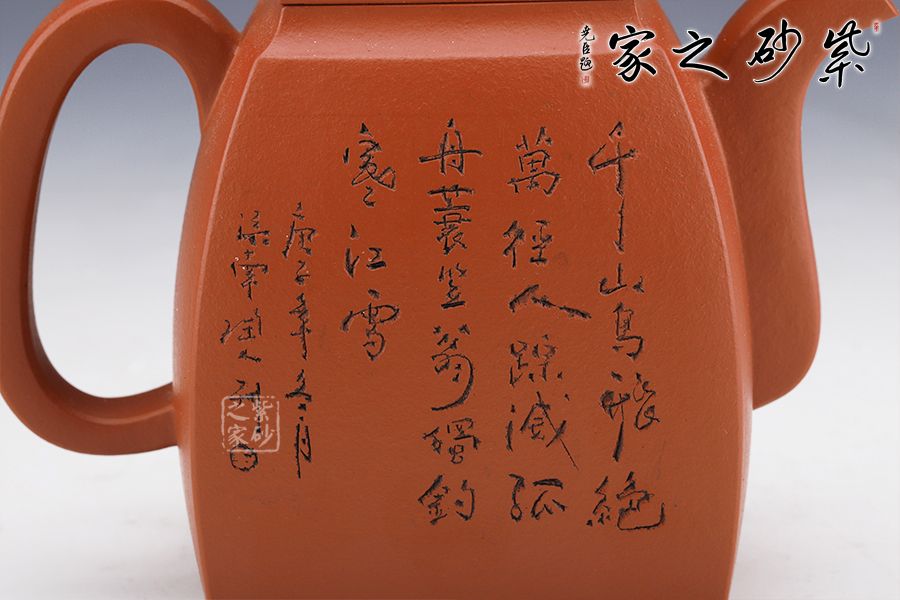 紫砂之家
堯臣題
千山鳥飛絕
萬徑人蹤滅孤
舟蓑笠翁獨釣
寒江雪
庚子年冬月
紫砂之家